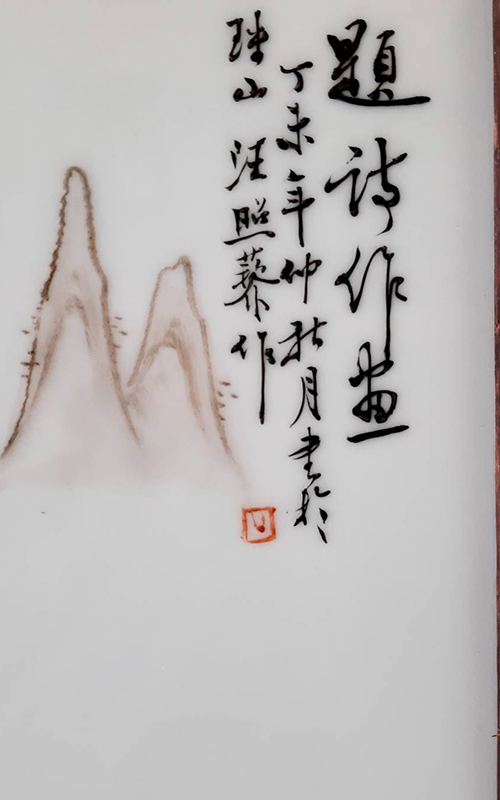 題詩作畫
丁未年仲秋月書於
珠山 汪照藜作